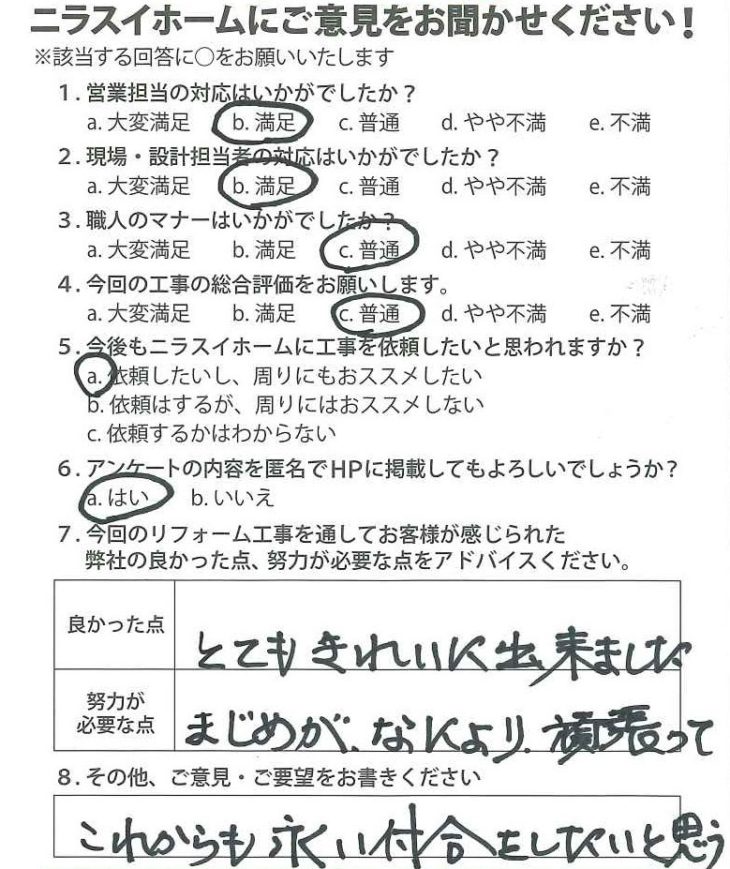 ニラスイホームにご意見をお聞かせください！
※該当する回答に○をお願いいたします
1．営業担当の対応はいかがでしたか？
a. 大変満足 b. 満足 c. 普通 d. やや不満 e. 不満
2．現場・設計担当者の対応はいかがでしたか？
a. 大変満足 b. 満足 c. 普通 d. やや不満 e. 不満
3．職人のマナーはいかがでしたか？
a. 大変満足 b. 満足 c. 普通 d. やや不満 e. 不満
4．今回の工事の総合評価をお願いします。
a. 大変満足 b. 満足 c. 普通 d. やや不満 e. 不満
5．今後もニラスイホームに工事を依頼したいと思われますか？
a. 依頼したいし、周りにもおススメしたい
b. 依頼はするが、周りにはおススメしない
c. 依頼するかはわからない
6．アンケートの内容を匿名でHPに掲載してもよろしいでしょうか？
a. はい b. いいえ
7．今回のリフォーム工事を通してお客様が感じられた
弊社の良かった点、努力が必要な点をアドバイスください。
良かった点
とてもきれいに出来ました
努力が
必要な点
まじめが、なにより、頑張って
8．その他、ご意見・ご要望をお書きください
これからも永い付合をしたいと思う